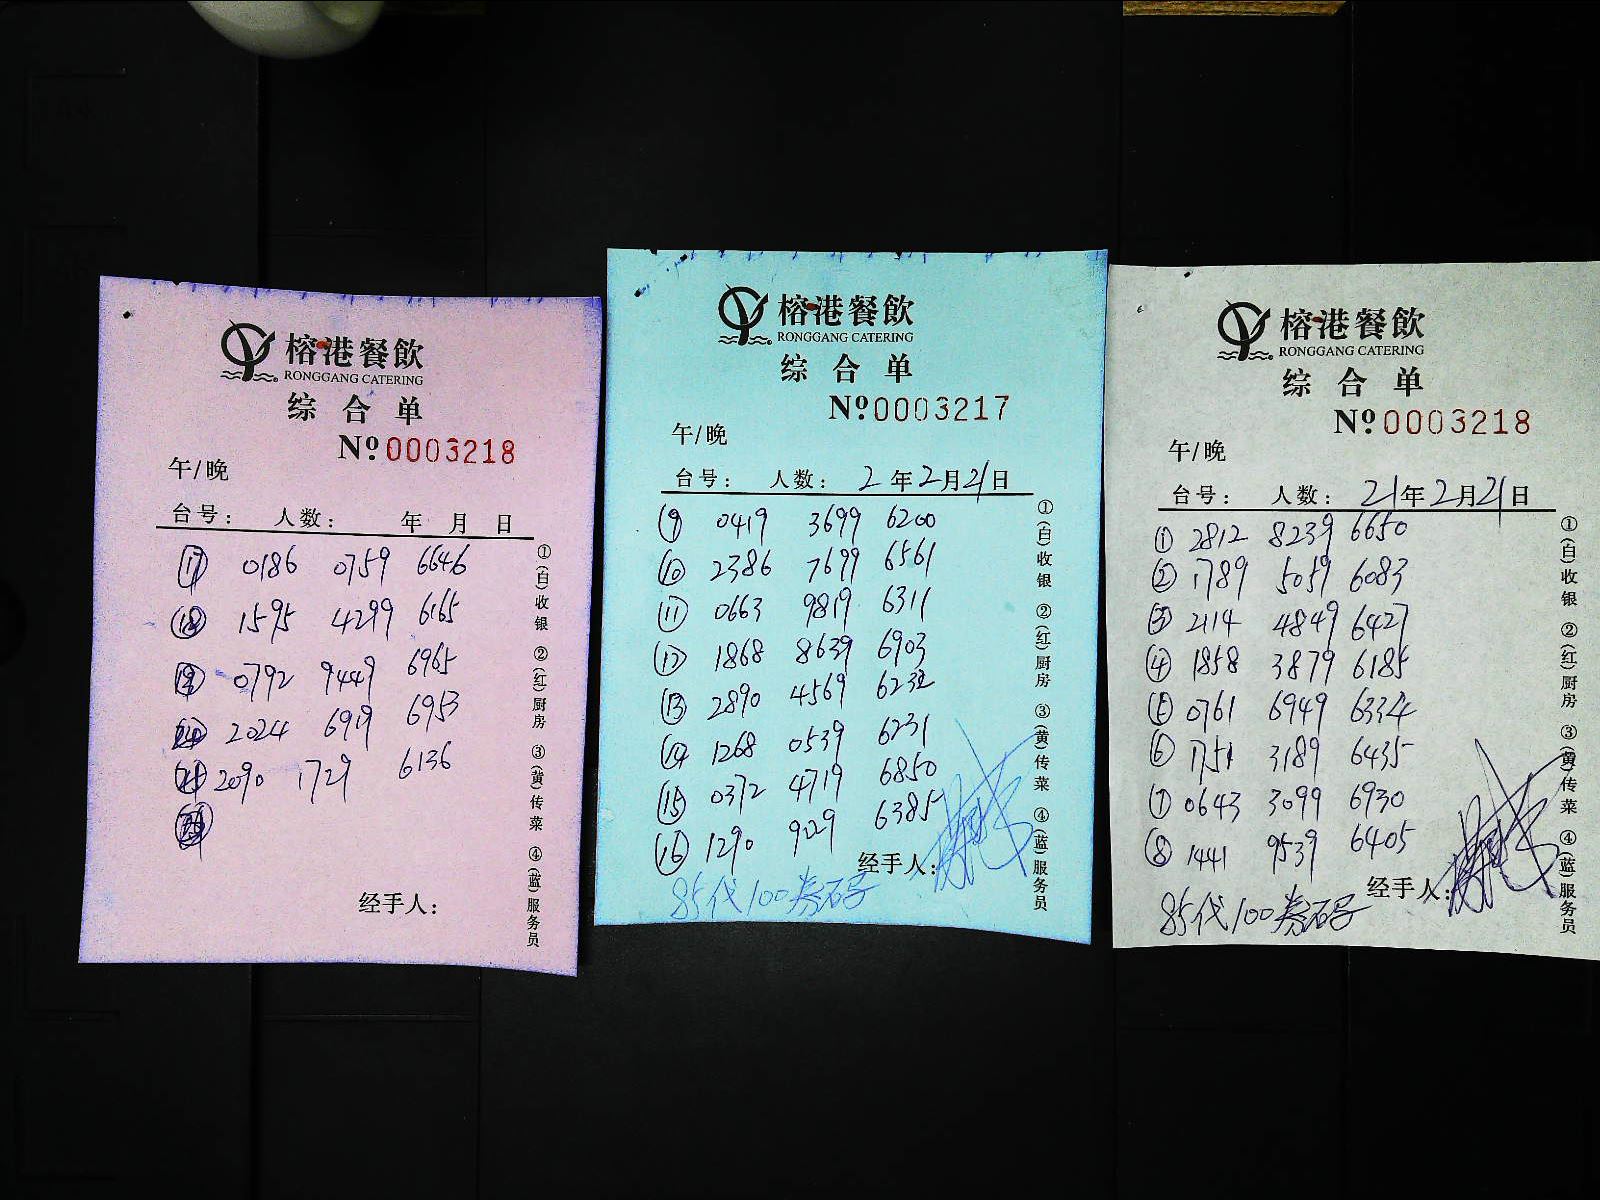 榕港餐飲
RONGGANG CATERING
综合单
Nº0003218
午/晚
台号： 人数： 年 月 日
⑰ 0186 0759 6646
⑱ 1595 4299 6165
⑲ 0792 9449 6965
⑳ 2024 6919 6953
㉑ 2090 1729 6136
经手人：
①(白)收银 ②(红)厨房 ③(黄)传菜 ④(蓝)服务员
榕港餐飲
RONGGANG CATERING
综合单
Nº0003217
午/晚
台号： 人数： 2年2月21日
⑨ 0419 3699 6200
⑩ 2386 7699 6561
⑪ 0663 9819 6311
⑫ 1868 8639 6903
⑬ 2890 4569 6232
⑭ 1268 0539 6231
⑮ 0372 4719 6850
⑯ 1290 9129 6385
经手人：
85代100券码
①(白)收银 ②(红)厨房 ③(黄)传菜 ④(蓝)服务员
榕港餐飲
RONGGANG CATERING
综合单
Nº0003218
午/晚
台号： 人数： 21年2月21日
① 2812 8239 6650
② 1789 5059 6083
③ 2114 4849 6427
④ 1858 3879 6185
⑤ 0761 6949 6334
⑥ 1751 3189 6435
⑦ 0643 3099 6930
⑧ 1441 9539 6405
经手人：
85代100券码
①(白)收银 ②(红)厨房 ③(黄)传菜 ④(蓝)服务员